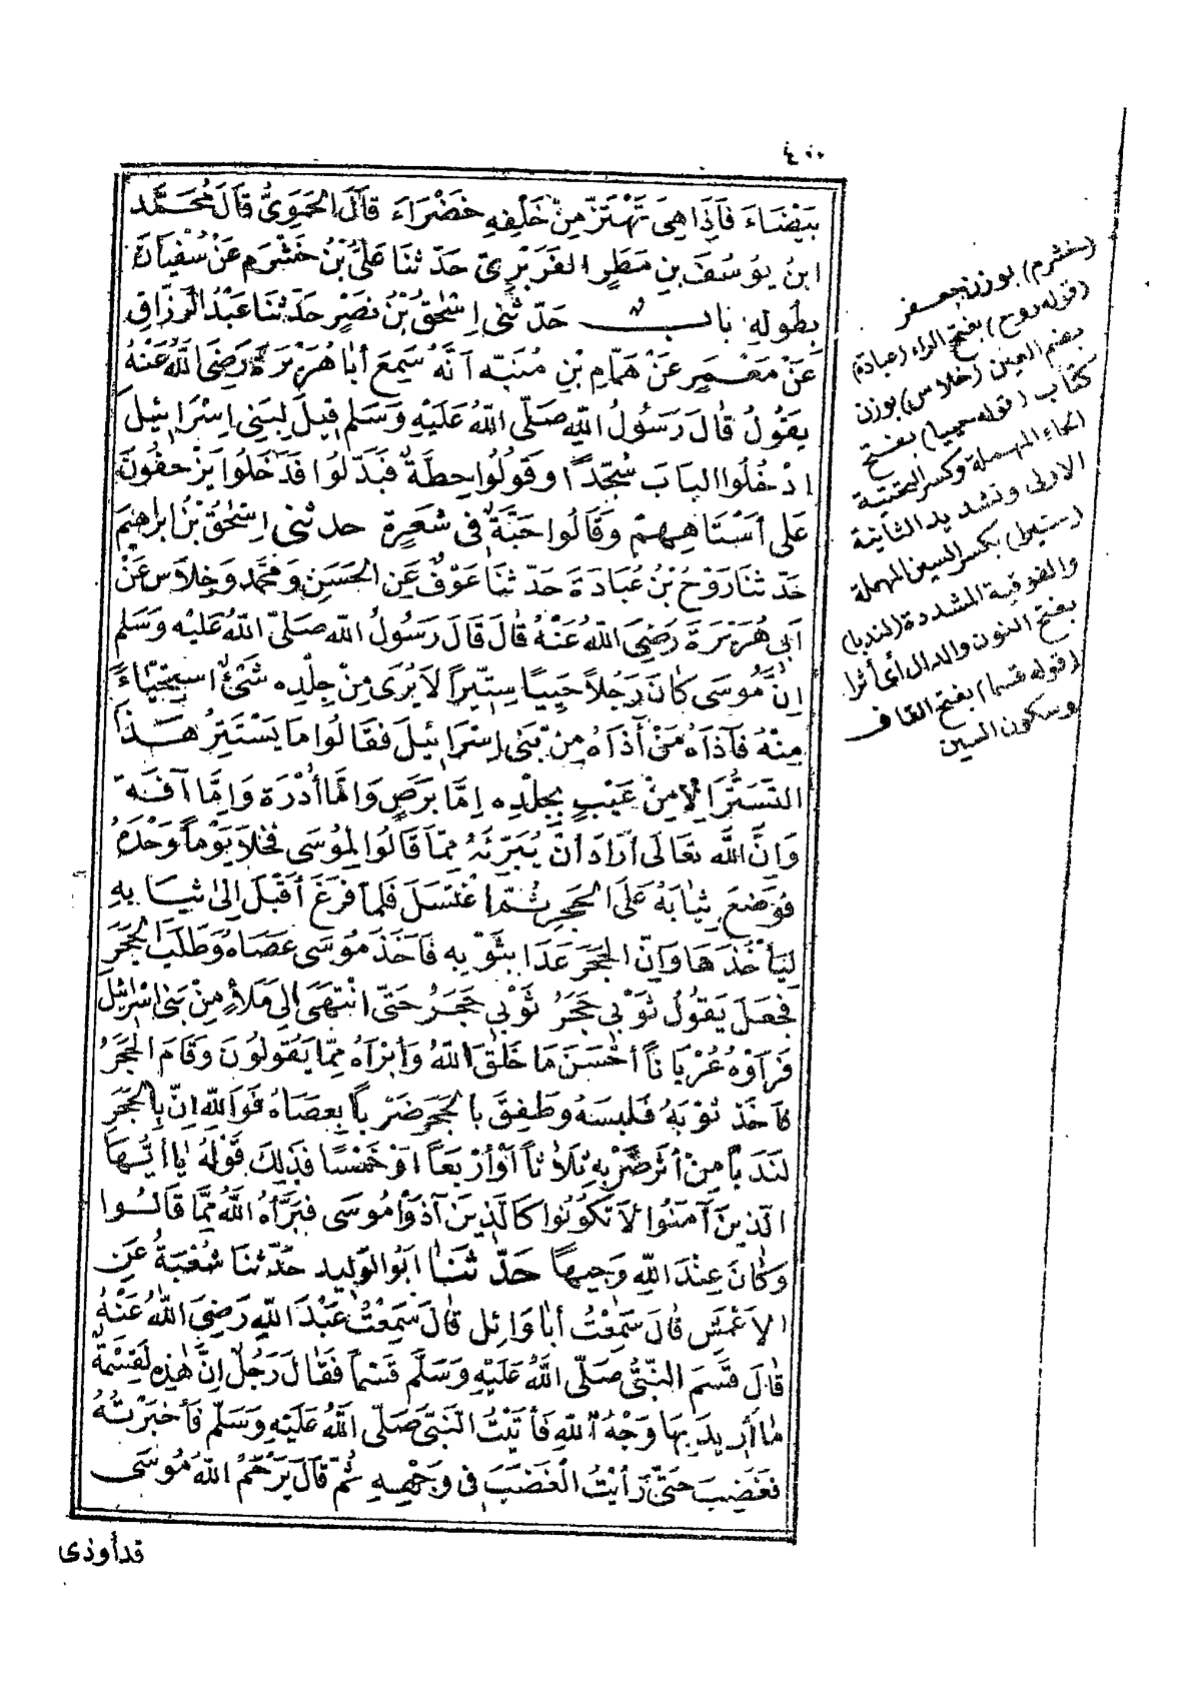 ٤٠٠
بَيْضَاءَ فَاِذَا هِىَ تَهْتَزُّ مِنْ خَلْفِهِ خَضْرَاءَ قَالَ الحَمَوِىُّ قَالَ مُحَمَّد
ابنُ يوُسُفَ بنِ مَطَرٍ الفَرَبْرِىّ حَدّثنَا عَلىُّ بْنُ خَشْرَمٍ عَنْ سُفْيَانَ
بطُولِهِ باب حَدّثَنِى اِسْحٰقُ بْنُ نَصْرٍ حَدّثنَا عَبْدُ الرَّزَّاقِ
عَنْ مَعْمَرٍ عَنْ هَمَّامِ بْنِ مُنَبِّه اَنَّهُ سَمِعَ أبَا هُرَيْرَةَ رَضِىَ اللهُ عَنْهُ
يَقوُلُ قَالَ رَسُولُ اللهِ صَلَّى اللهُ عَلَيْهِ وَسَلم قِيلَ لِبَنِى اِسْرَائِيلَ
ادْخُلُوا البَابَ سُجَّدًا وقَوُلُوا حِطَّةٌ فَبَدّلُوا فَدَخَلُوا يَزْحفُونَ
عَلَى أسْتَاهِهِمْ وَقَالُوا حَبَّةٌ فى شَعْرَة حدثنى اِسْحٰقُ بْنُ ابراهِيمَ
حَدّثنَا رَوْحُ بْنُ عُبَادَةَ حَدّثنَا عَوْفٌ عَنِ الحَسَنِ وَمُحَمَّد وَخِلاَسٍ عَنْ
اَبِى هُرَيْرَةَ رَضِىَ اللهُ عَنْهُ قَالَ قَالَ رَسُولُ الله صَلّى اللهُ عَلَيْهِ وَسَلم
اِنَّ مُوسَى كَانَ رَجُلاً حَيِيًا سِتِّيراً لاَ يُرَى مِنْ جِلْدِه شَىْءٌ اسْتِحْيَاءً
مِنْهُ فَآذَاهُ مَنْ آذَاهُ مِنْ بَنِى اِسْرَائِيلَ فَقَالُوا مَا يَسْتَتِرُ هَذَا
التَسَتُّرَ اِلاّ مِنْ عَيْبٍ بِجِلْدِهِ اِمَّا بَرَصٍ وَاِمَّا أُدْرَة وَاِمَّا آفَة
وَاِنَّ اللهَ تعَالَى أرَادَ أنْ يُبَرِّئَهُ مِمّا قَالُوا لِمُوسَى فَخَلاَ يَوْماً وَحْدَهُ
فوَضَعَ ثِيَابَهُ عَلَى الحَجَرِ ثُمّ اغْتسَلَ فَلمّا فرَغَ أقْبَلَ اِلَى ثيَابِهِ
لِيَأْخُذَهَا وَاِنّ الحَجَرَ عَدَا بِثَوْبِه فَاَخَذَ مُوسَى عَصَاهُ وَطَلبَ الحَجَرَ
فجَعَلَ يَقوُلُ ثَوْبِى حَجَرُ ثَوْبِى حَجَرُ حَتّى انْتَهَى اِلَى مَلأٍ مِنْ بَنِى اِسْرَائِيلَ
فَرَأوْهُ عُرْيَاناً أحْسَنَ مَا خَلَقَ اللهُ وَأبْرَاهُ مِمّا يَقُولُونَ وَقَامَ الحَجَرُ
فاَخَذَ ثوْبَهُ فَلبِسَهُ وَطَفِقَ بالحَجَرِ ضَرْباً بِعَصَاهُ فَوَاللهِ اِنّ بالحَجَرِ
لَنَدَباً مِنْ أثَرِ ضَرْبِهِ ثَلاَثاً أوْ أرْبَعاً اَوْ خَمْسًا فَذٰلِكَ قَوْلُهُ يَا أيُّهَا
الّذِينَ آمَنُوا لاَ تَكُونُوا كَالّذِينَ آذَوْا مُوسَى فَبَرَّأهُ اللهُ مِمَّا قَالُوا
وَكَانَ عِنْدَ اللهِ وَجِيهاً حَدّثَنَا ابَوُ الوَلِيد حَدّثنَا شُعْبَةُ عَنِ
الاَعْمَشِ قَالَ سَمِعْتُ أبَا وَائِل قَالَ سَمِعْتُ عَبْدَ اللهِ رَضِىَ اللهُ عَنْهُ
قَالَ قسَمَ النّبِىُّ صَلّى اللهُ عَلَيْهِ وَسَلَّم قَسْماً فَقَالَ رَجُلٌ اِنَّ هٰذِهِ لَقِسْمَةٌ
مَا أُرِيدَ بِهَا وَجْهُ اللهِ فَأتَيْتُ النّبِىَّ صَلّى اللهُ عَلَيْهِ وَسَلّم فَأخْبَرْتُهُ
فَغَضِبَ حَتّى رَأيْتُ الْغَضَبَ فى وَجْهِهِ ثُمّ قَالَ يَرْحَمُ اللهُ مُوسَى
قد أوذى
(خشرم) بوزن جعفر
(قوله روح) بفتح الراء (عبادة)
بضم العين (خلاس) بوزن
كتاب (قوله حييا) بفتح
الحاء المهملة وكسر التحتية
الاولى وتشديد الثانية
(ستيرا) بكسر السين المهملة
والفوقية المشددة (لندبا)
بفتح النون والدال أى أثرا
(قوله قسما) بفتح القاف
وسكون السين